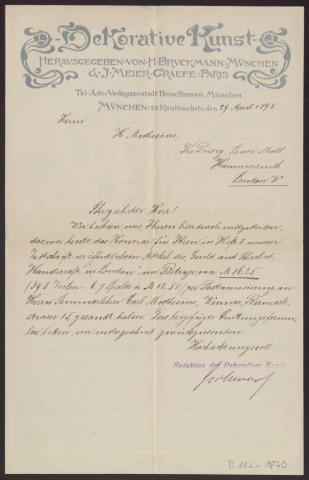 DEKORATIVE KUNST
HERAUSGEGEBEN·VON·H·BRUCKMANN·MÜNCHEN
& J·MEIER-GRAEFE·PARIS
Tel-Adr·Verlagsanstalt Bruckmann München
MÜNCHEN: 22 Kaulbachstr. den 29 April 1898
Herrn
H. Muthesius,
The Priory, Lower Mall
Hammersmith
London W.
Sehr geehrter Herr!
Wir beehren uns Ihnen hierdurch mitzuteilen,
dass wir heute das Honorar für Ihren in Heft 8 unserer
Zeitschrift veröffentlichten Artikel die Guild and School of
Handicraft in London im Betrage von M 16.25
Zeilen Spalte à M 12.50 per Postanweisung an
Herrn Seminarlehrer Carl Muthesius, Weimar,
strasse 15 gesandt haben. Das beigefügte
bitten wir zurückzusenden
Hochachtungsvoll
Redaktion der Dekorativen Kunst
D 102-1870